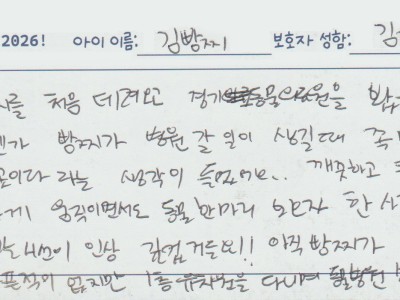 2026! 아이 이름: 김빵찌 보호자 성함: 김
를 처음 데려오고 경기동물의료원을
빵찌가 병원 갈 일이 생길 때
이다 라는 생각이 들었어요.. 깨끗하고
게 움직이면서도 동물 한마리 보호자 한 사
이 인상 깊었거든요!! 아직 빵찌가
없지만 1층 유치원을 다니며